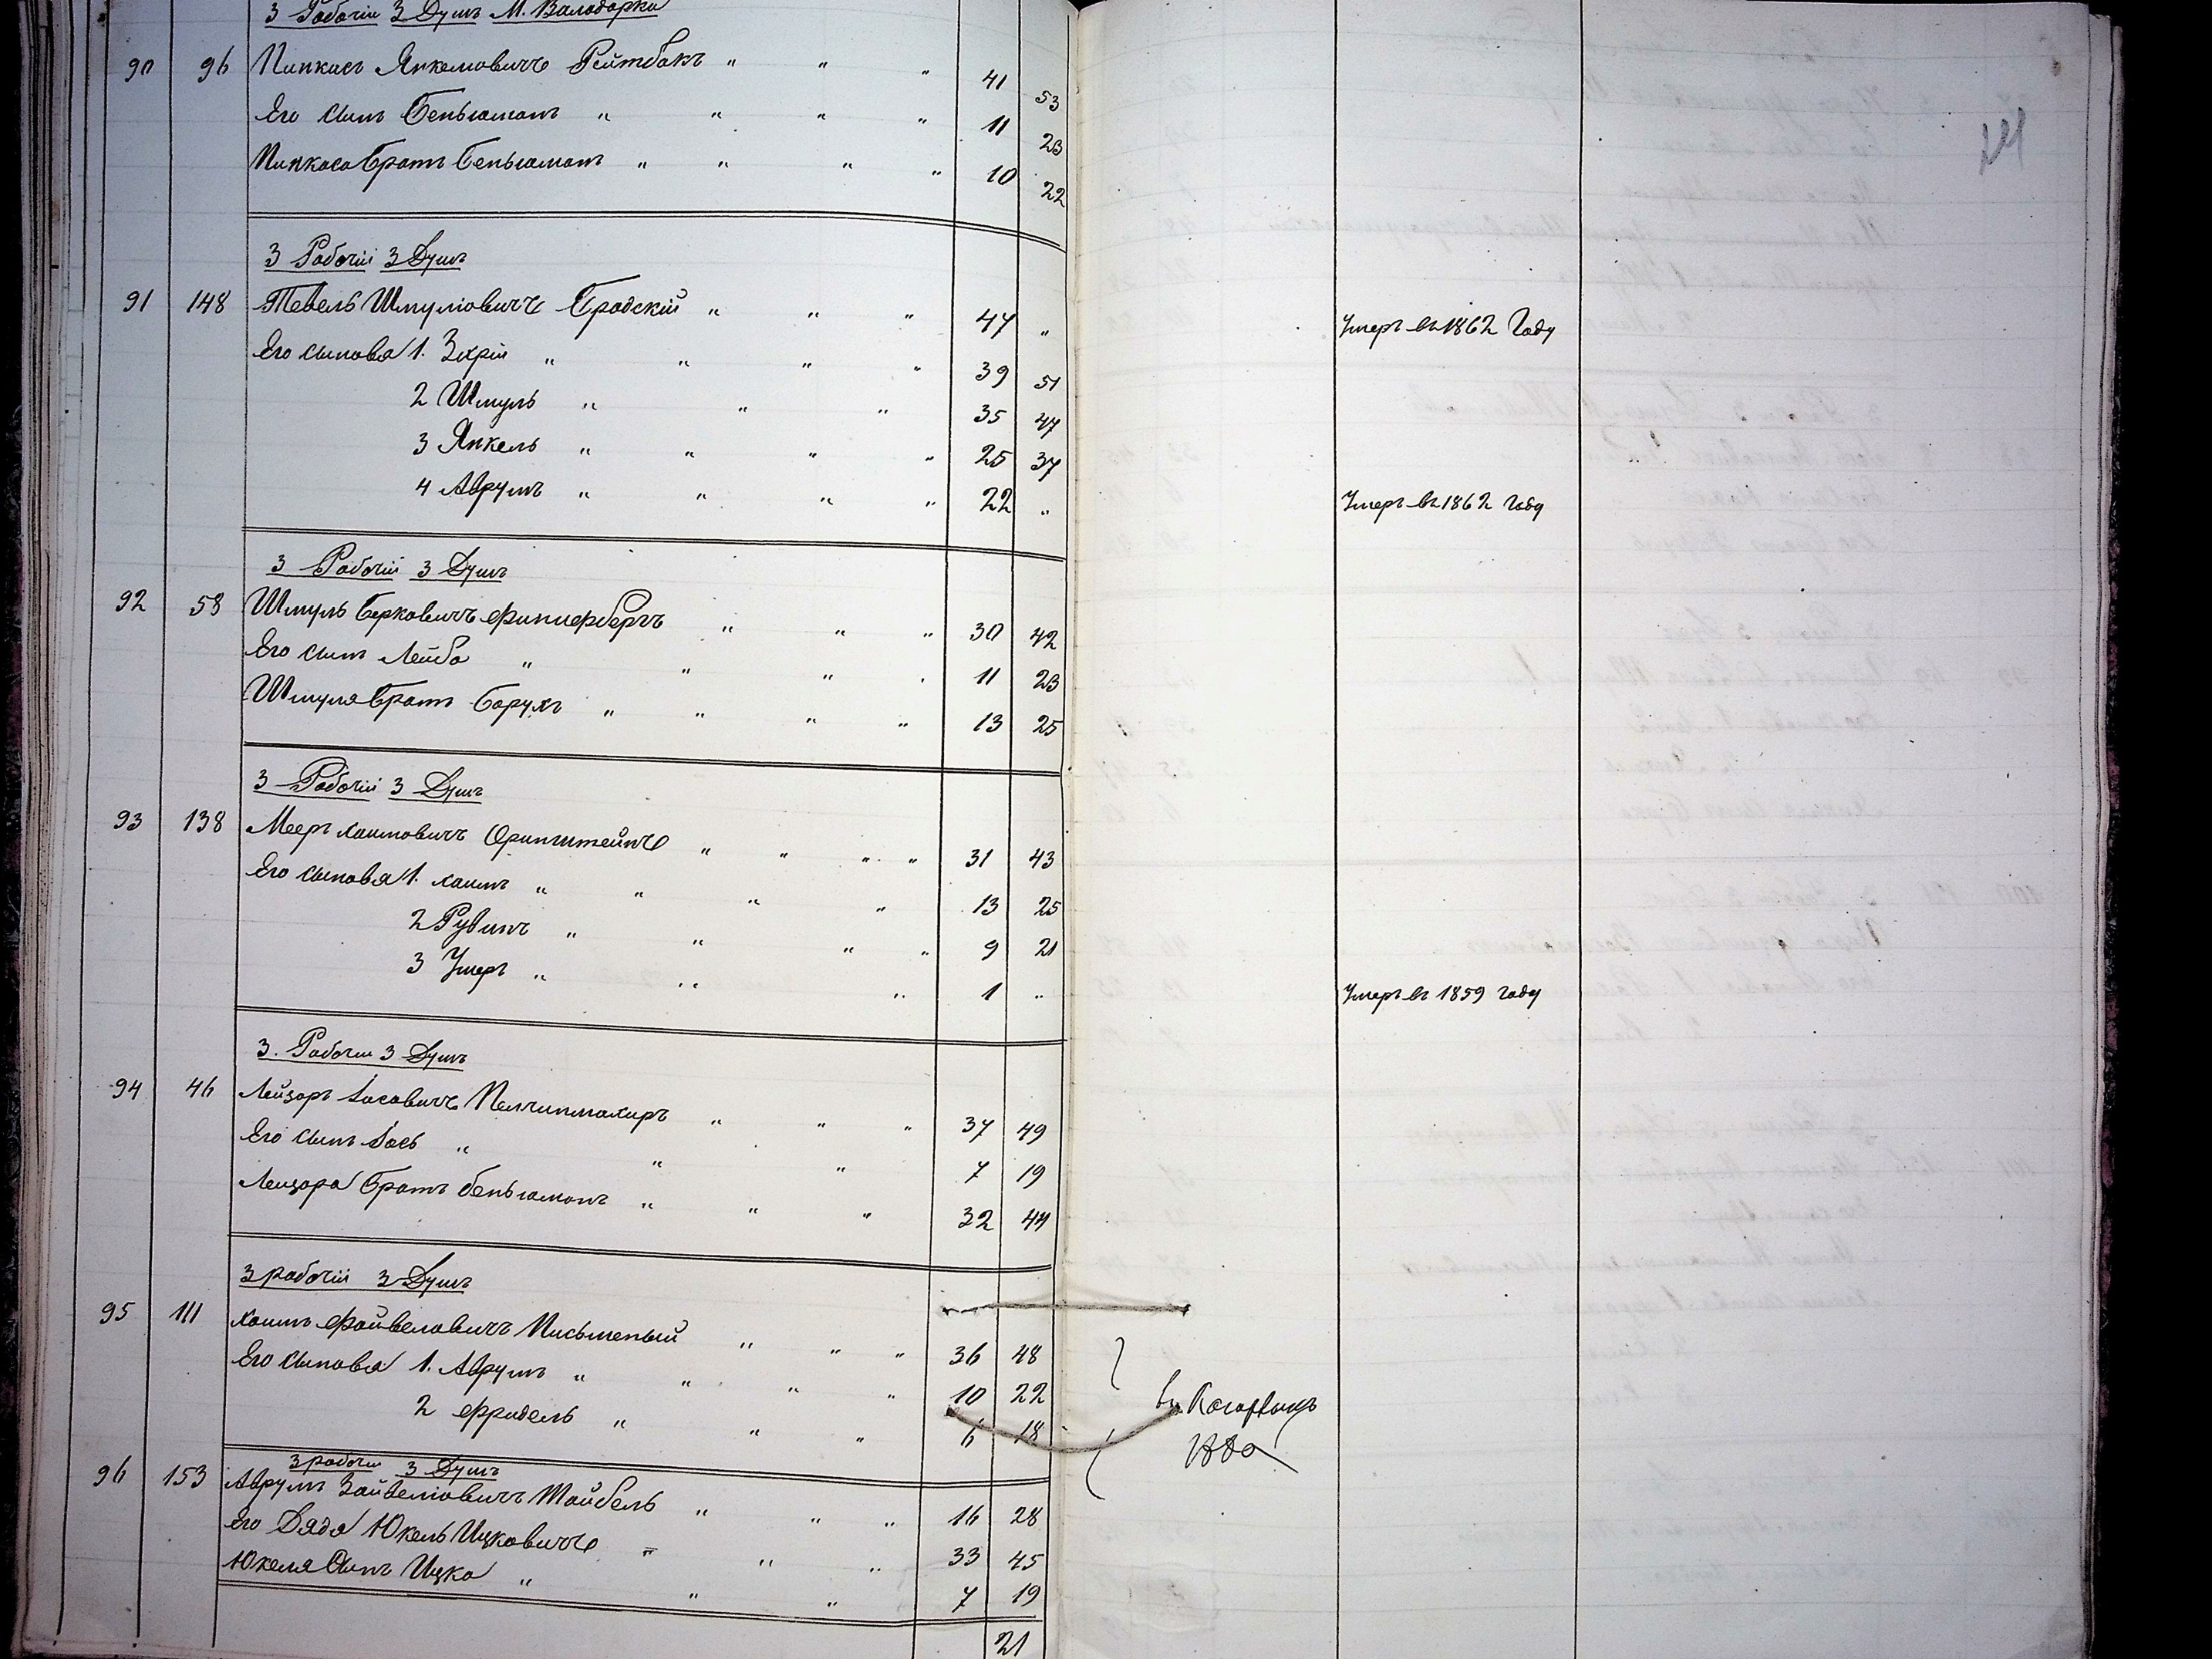 3 Рабочіи 3 Душъ М. Володарка
90 96 Пинкасъ Янкелиовичъ Рейтбакъ " " " 41 53
Его сынъ Беньюманъ " " " " 11 23
Пинкаса братъ Беньюманъ " " " " 10 22
3 Рабочіи 3 Душъ
91 148 Тевель Шмуліовичъ Бродскій " " " 47 " Умеръ въ 1862 Году
Его сыновья 1. Зхрія " " " " 39 51
2 Шмуль " " " 35 47
3 Янкель " " " " 25 37
4 Аврумъ " " " " 22 " Умеръ въ 1862 году
3 Рабочіи 3 Душъ
92 58 Шмуль Берковичъ " " " 30 42
Его сынъ Лейба " " " " 11 23
Шмуля братъ Борухъ " " " " 13 25
3 Рабочіи 3 Душъ
93 138 Мееръ Хаимовичъ " " " " 31 43
Его сыновья 1. Хаимъ " " " " 13 25
2 Рувинъ " " " " 9 21
3 Умеръ " " " 1 " Умеръ въ 1859 году
3. Рабочіи 3 Душъ
94 46 Лейзоръ Іосовичъ " " " 37 49
Его сынъ Іось " " " 7 19
Лейзора братъ беньюманъ " " " 32 44
3 рабочіи 3 Душъ
95 111 Хаимъ Файвеловичъ Письменый " " " 36 48
Его сыновья 1. Аврумъ " " " " 10 22
2 Фридель " " " 6 18
3 рабочіи 3 Душъ
96 153 Аврумъ Зайвеліовичъ Тойбель " " " 16 28
Его Дядя Юкель Ицковичъ " " " 33 45
Юкеля Сынъ Ицко " " " 7 19
21